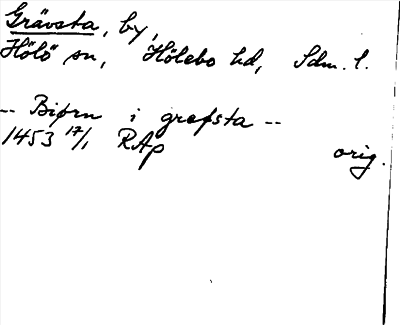 Grävsta, by,
Hölö sn, Hölebo hd, Sdm. l.
-- Biørn i grefsta --
1453 17/1 RAp orig.